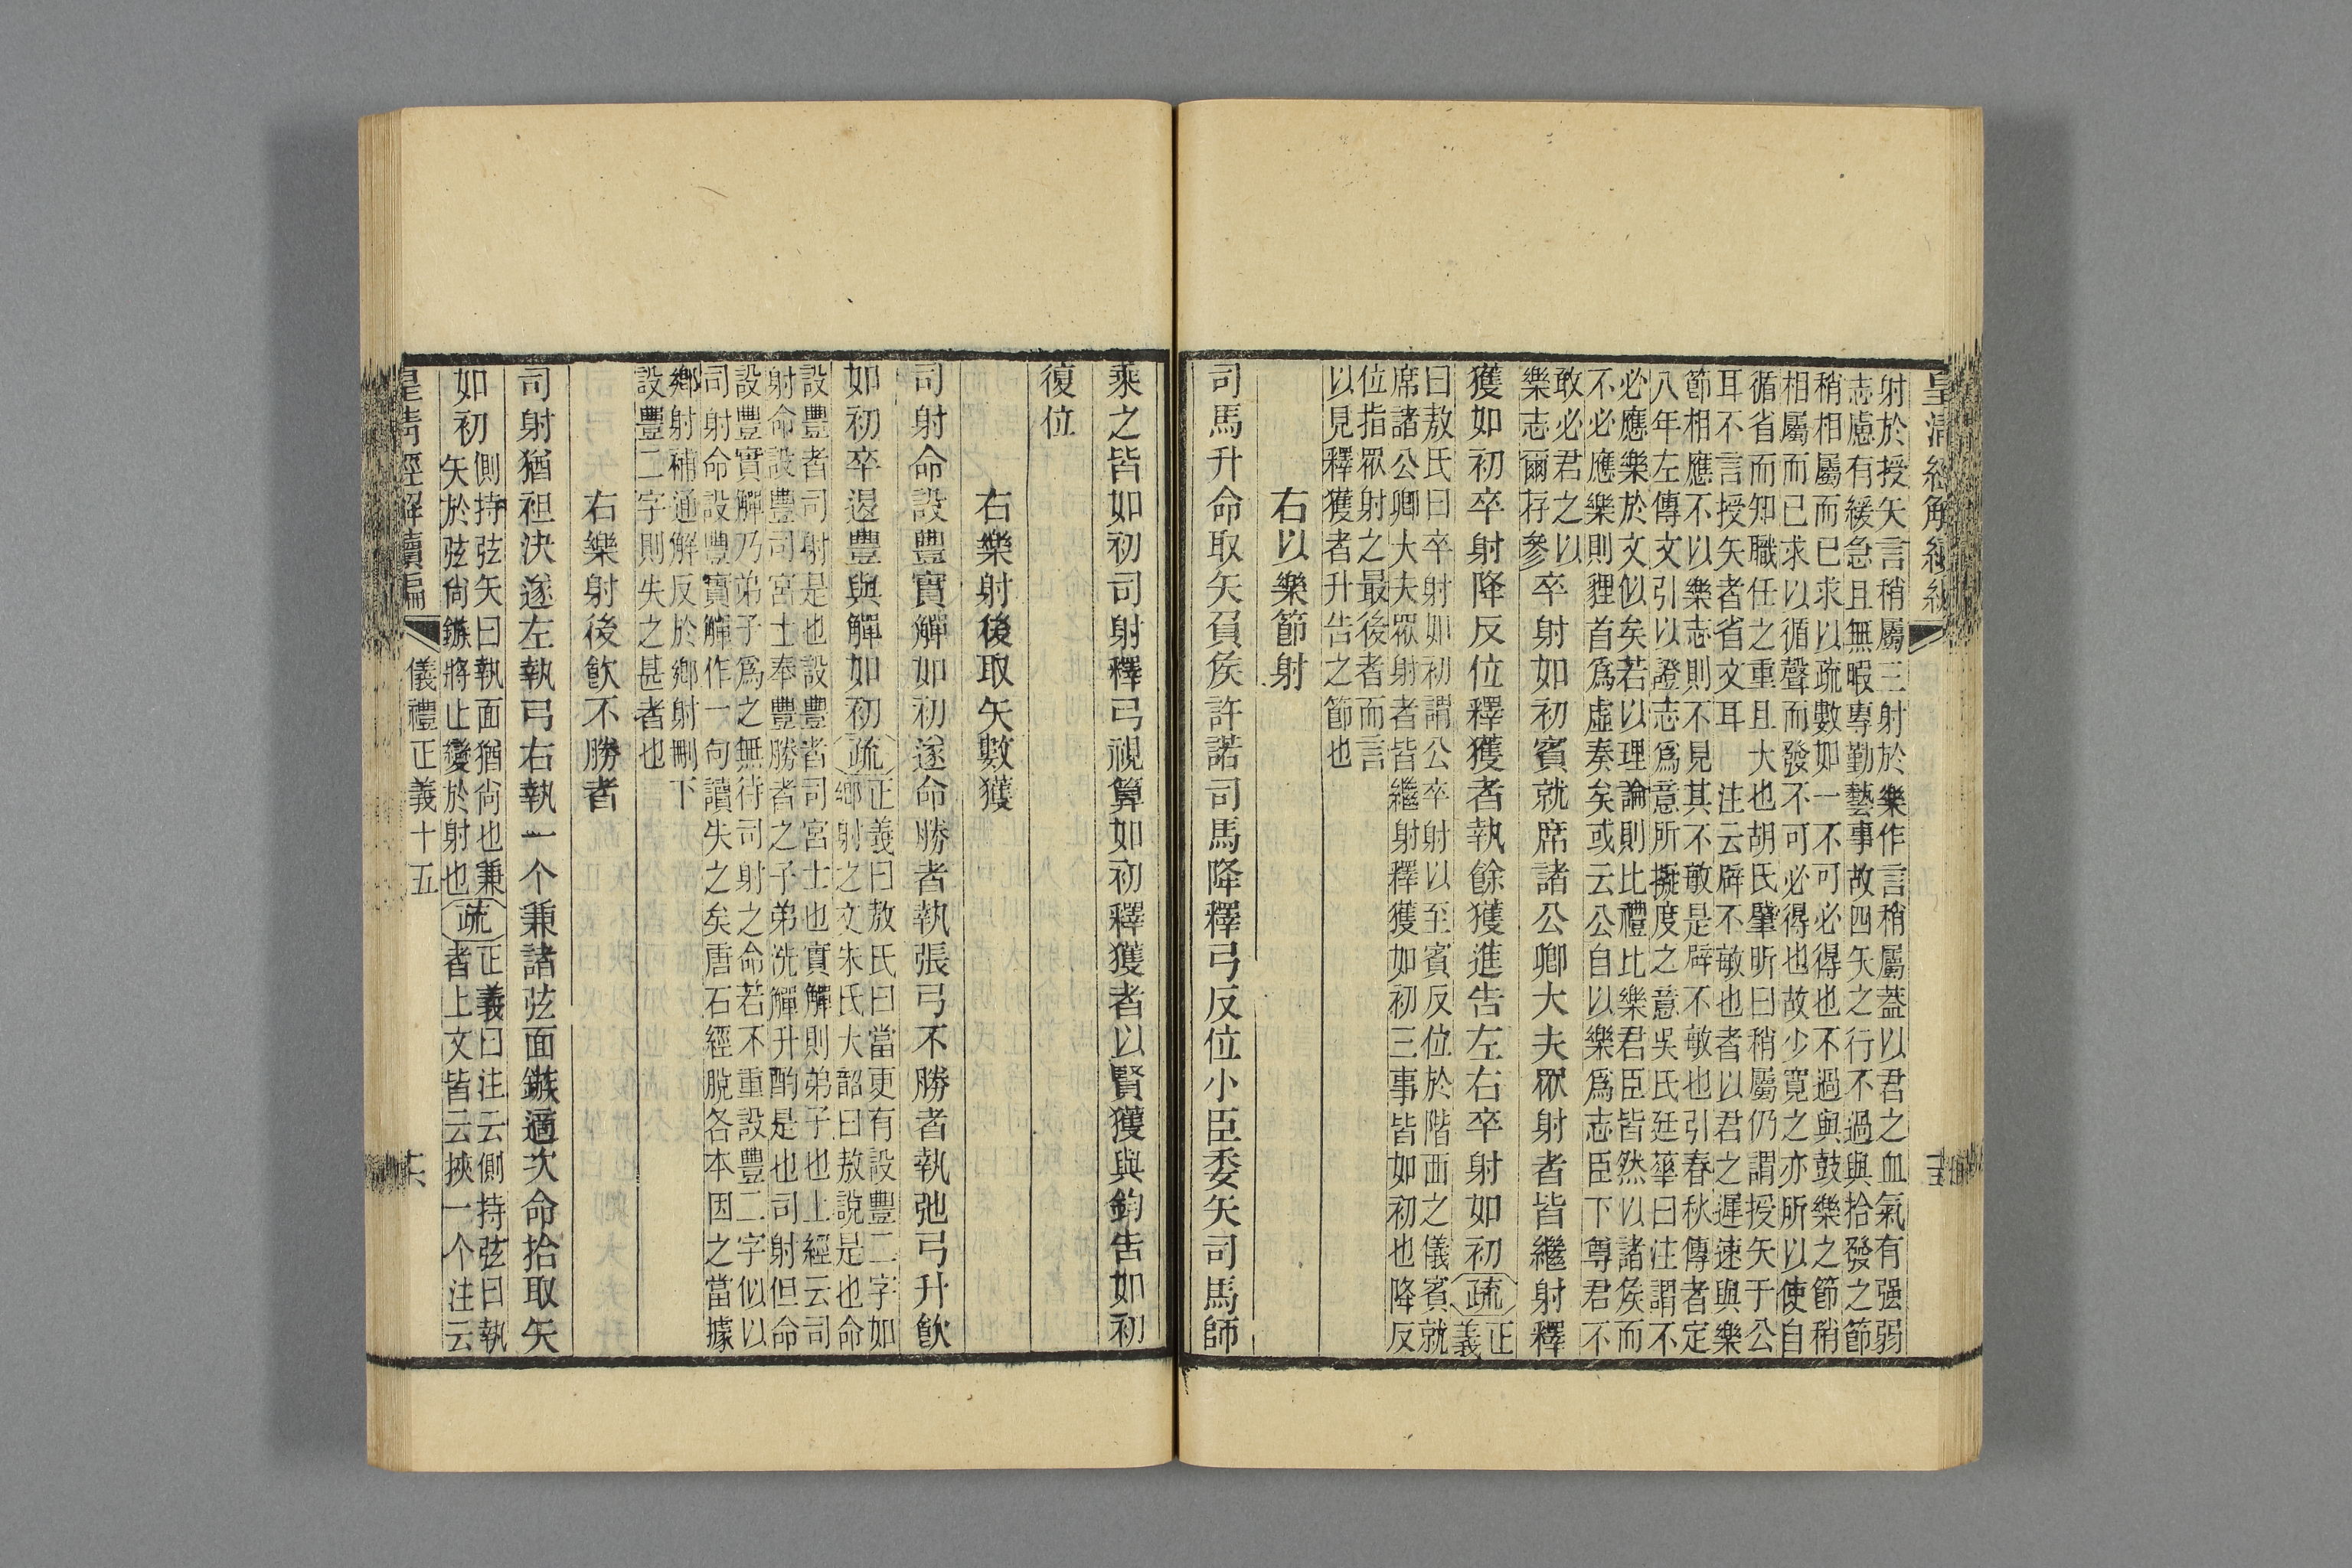 皇清經解續編
射於授矢言稍屬三射於樂作言稍屬蓋以君之血氣有强弱
志慮有緩急且無暇專勤藝事故四矢之行不過與拾發之節
稍相屬而已求以疏數如一不可必得也不過與鼓樂之節稍
相屬而已求以循聲而發不可必得也故少寬之亦所以使自
循省而知職任之重且大也胡氏肇昕曰稍屬仍謂授矢于公
耳不言授矢者省文耳 注云辟不敏也者以君之遲速與樂
節相應不以樂志則不見其不敏是辟不敏也引春秋傳者定
八年左傳文引以證志爲意所擬度之意吳氏廷華曰注謂不
必應樂於文似矣若以理論則比禮比樂君臣皆然以諸侯而
不必應樂則貍首爲虛奏矣或云公自以樂爲志臣下尊君不
敢必君之以
樂志爾存參
卒射如初賓就席諸公卿大夫眾射者皆繼射釋
獲如初卒射降反位釋獲者執餘獲進告左右卒射如初
疏
正
義
曰敖氏曰卒射如初謂公卒射以至賓反位於階西之儀賓就
席諸公卿大夫眾射者皆繼射釋獲如初三事皆如初也降反
位指眾射之最後者而言
以見釋獲者升告之節也
右以樂節射
司馬升命取矢負侯許諾司馬降釋弓反位小臣委矢司馬師
乘之皆如初司射釋弓視算如初釋獲者以賢獲與鈞告如初
復位
右樂射後取矢數獲
司射命設豐實觶如初遂命勝者執張弓不勝者執弛弓升飲
如初卒退豐與觶如初
疏
正義曰敖氏曰當更有設豐二字如
鄉射之文朱氏大韶曰敖說是也命
設豐者司射是也設豐者司宮士也實觶則弟子也上經云司
射命設豐司宮士奉豐勝者之子弟洗觶升酌是也司射但命
設豐實觶乃弟子爲之無待司射之命若不重設豐二字似以
司射命設豐實觶作一句讀失之矣唐石經脫各本因之當據
鄉射補通解反於鄉射刪下
設豐二字則失之甚者也
右樂射後飲不勝者
司射猶袒決遂左執弓右執一个兼諸弦面鏃適次命拾取矢
如初
側持弦矢曰執面猶尙也兼
矢於弦尙鏃將止變於射也
疏
正義曰注云側持弦曰執
者上文皆云挾一个注云
皇清經解續編
儀禮正義十五